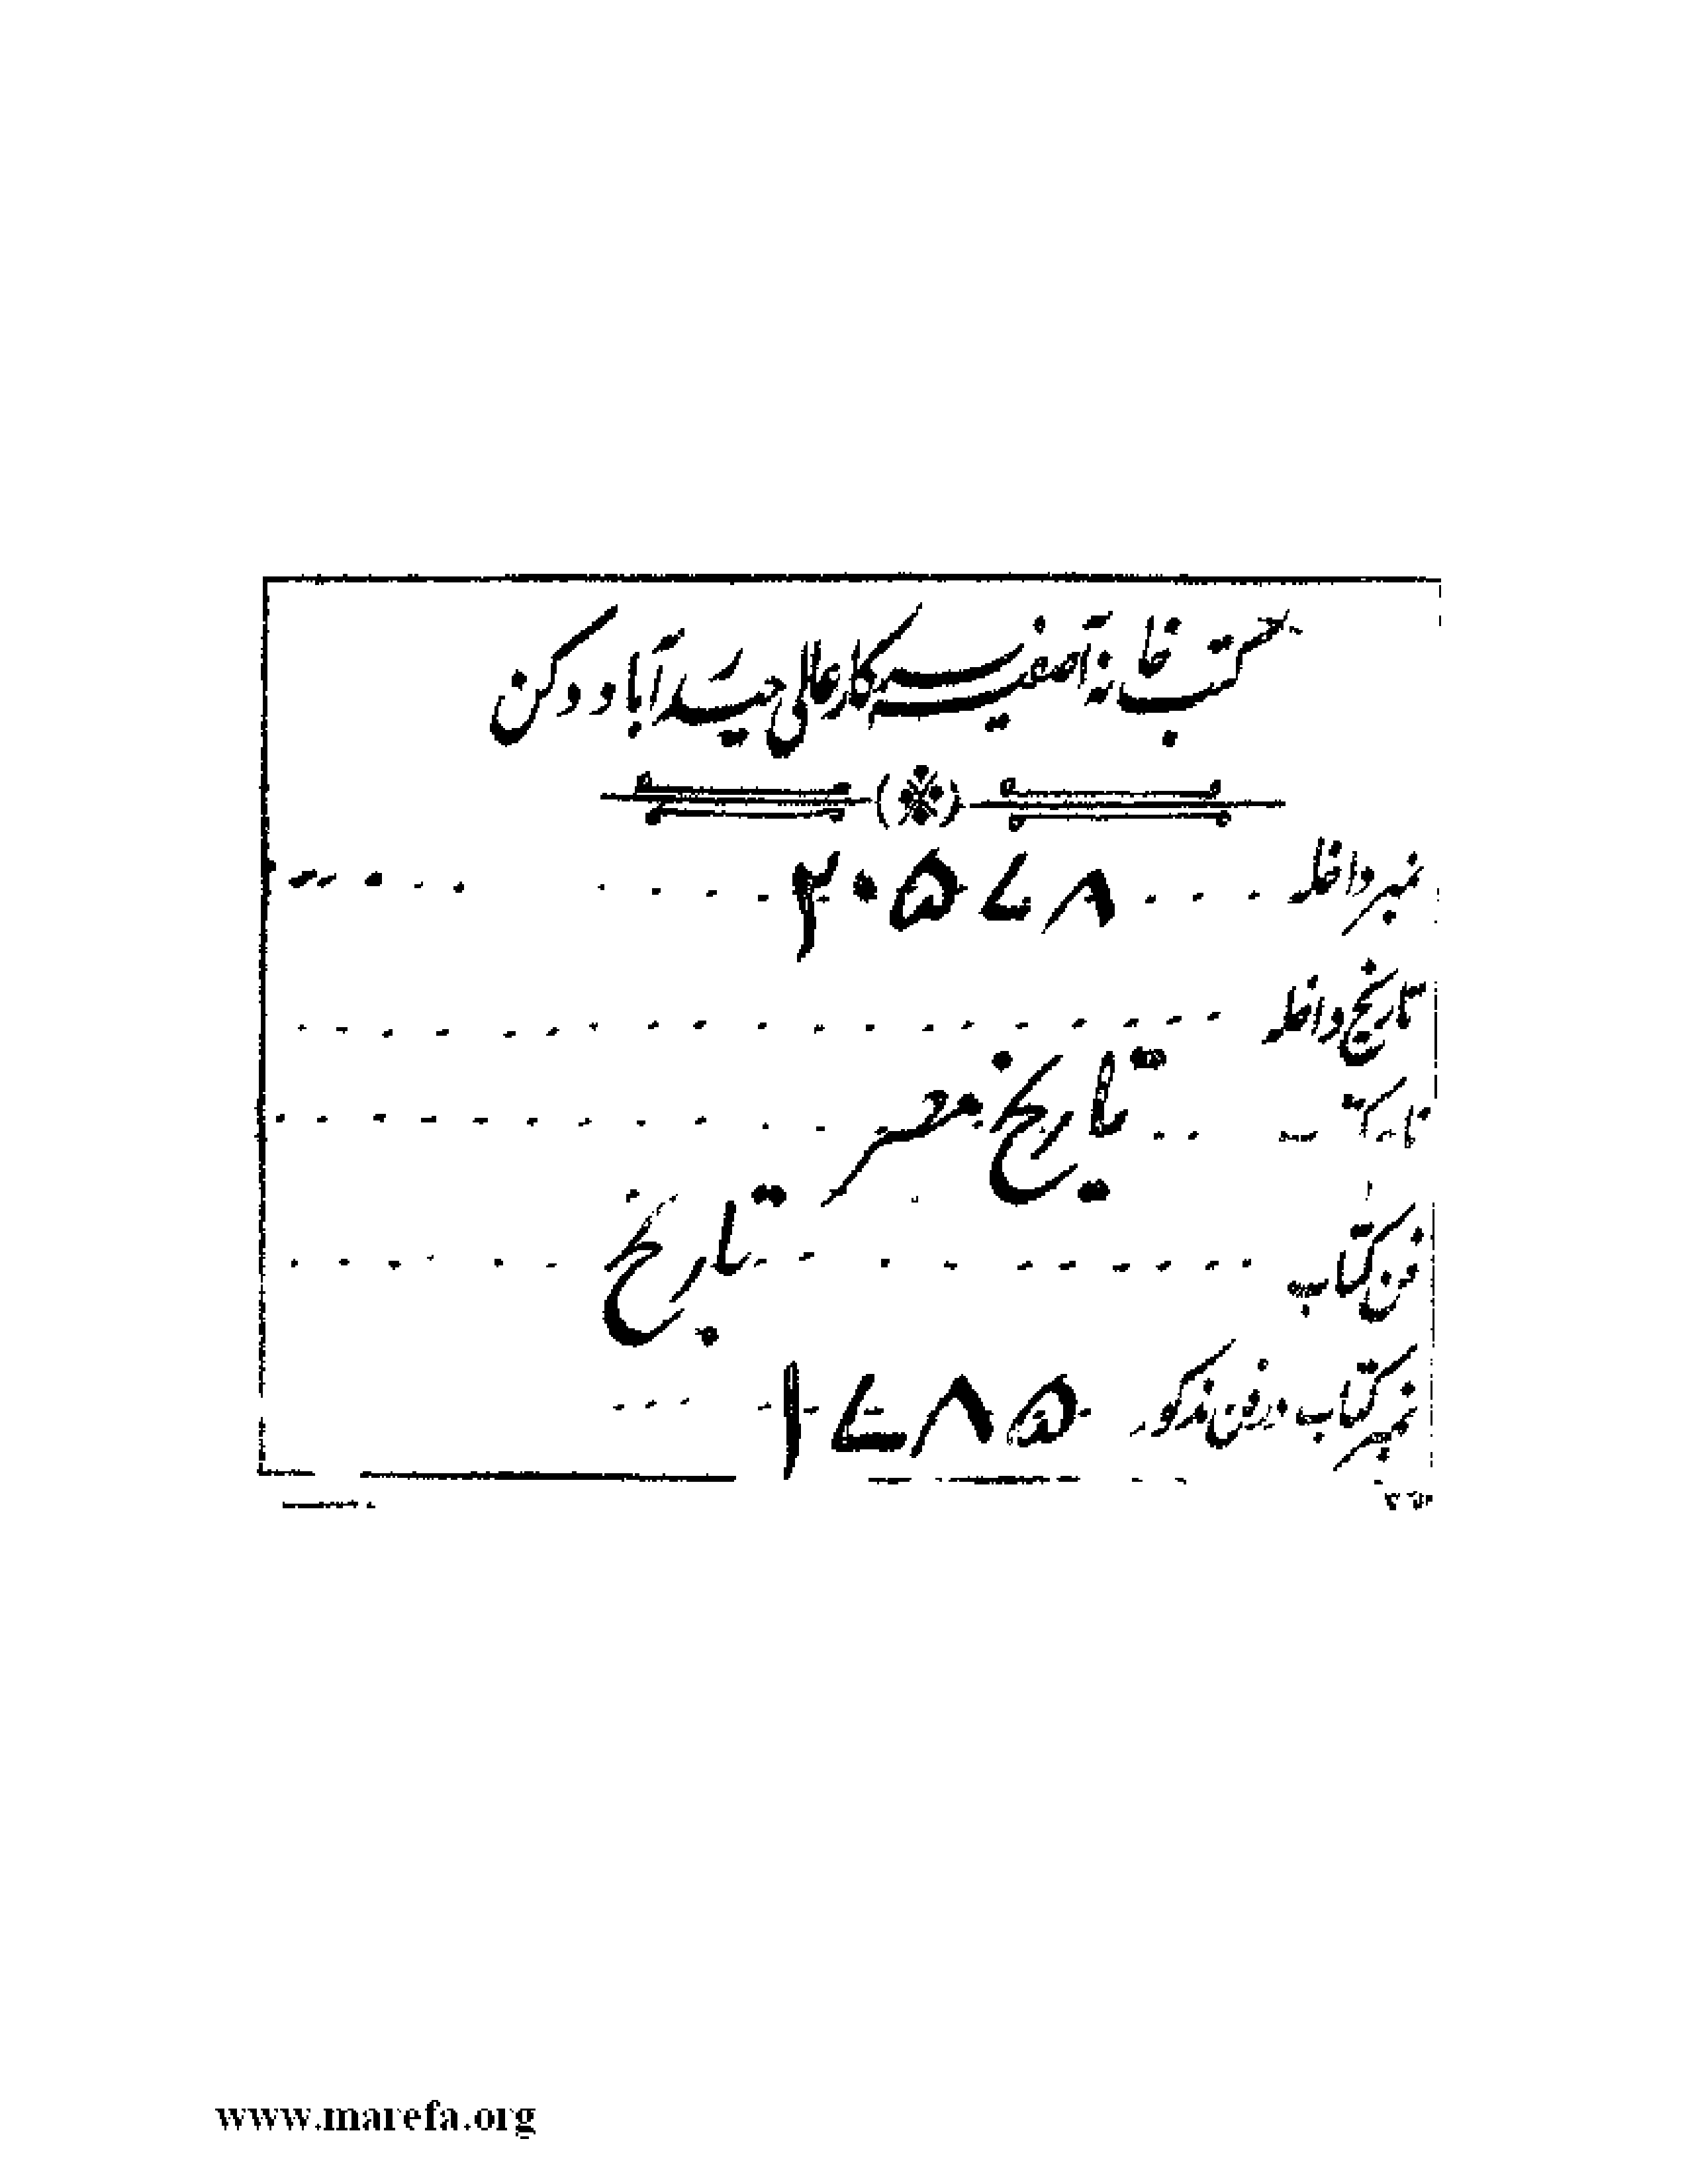 کتب خانہ آصفیہ سرکار عالی حیدرآباد دکن
نمبر داخلہ ۳۰۵۷۸
تاریخ داخلہ
نام کتاب تاریخ مصر
فن کتاب تاریخ
نمبر کتاب در فن مذکور ۱۷۸۵
www.marefa.org